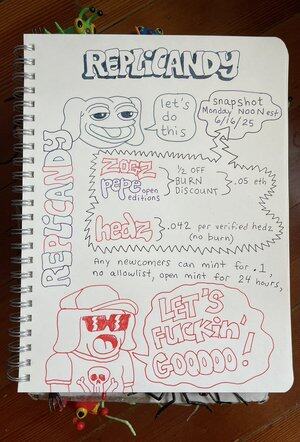 REPLiCANDY
let's
do
this
snapshot
Monday NOON est
6/16/25
REPLICANDY
ZOGZ
PEPE open
editions
1/2 OFF
BURN
DISCOUNT
.05 eth
hedz
.042 per verified hedz
(no burn)
Any newcomers can mint for .1,
no allowlist, open mint for 24 hours,
LET'S
FUCKiN'
GOOOOO!